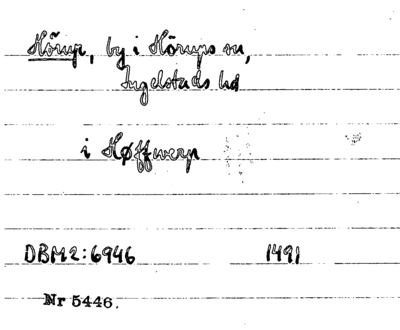 Hörup, by i Hörups sn,
Ingelstads hd
i Høffwerp
DBM2:6946 1491
Nr 5446.